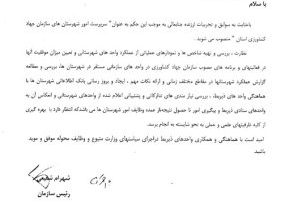 با سلام
باعنایت به سوابق و تجربیات ارزنده جنابعالی به موجب این حکم به عنوان" سرپرست امور شهرستان های سازمان جهاد
کشاورزی استان " منصوب می شوید .
نظارت ، بررسی و تهیه شاخص ها و نمودارهای عملیاتی از عملکرد واحد های شهرستانی و تعیین میزان موفقیت آنها
در فعالیتهای و برنامه های مصوب سازمان جهاد کشاورزی در واحد های سازمانی مستقر در شهرستان ها، بررسی و مطالعه
گزارش عملکرد شهرستانها در مقاطع مختلف زمانی و ارائه نکات مهم ، ایجاد و بروز رسانی بانک اطلاعاتی شهرستان ها با
هماهنگی واحد های ذیربط ، بررسی نیاز سندی های تدارکاتی و پشتیبانی اعلام شده از واحدهای شهرستانی و انعکاس آن به
واحدهای ستادی ذیربط و پیگیری امور تا حصول نتیجه،از عمده وظایف امور شهرستان ها می باشدکه انتظار دارد با بهره گیری
از کلیه ظرفیتهای علمی و عملی به نحو شایسته به انجام برسد.
امید است با هماهنگی و همکاری واحدهای ذیربط دراجرای سیاستهای وزارت متبوع و وظایف محوله موفق و موید
باشید
شهرام
رئیس سازمان